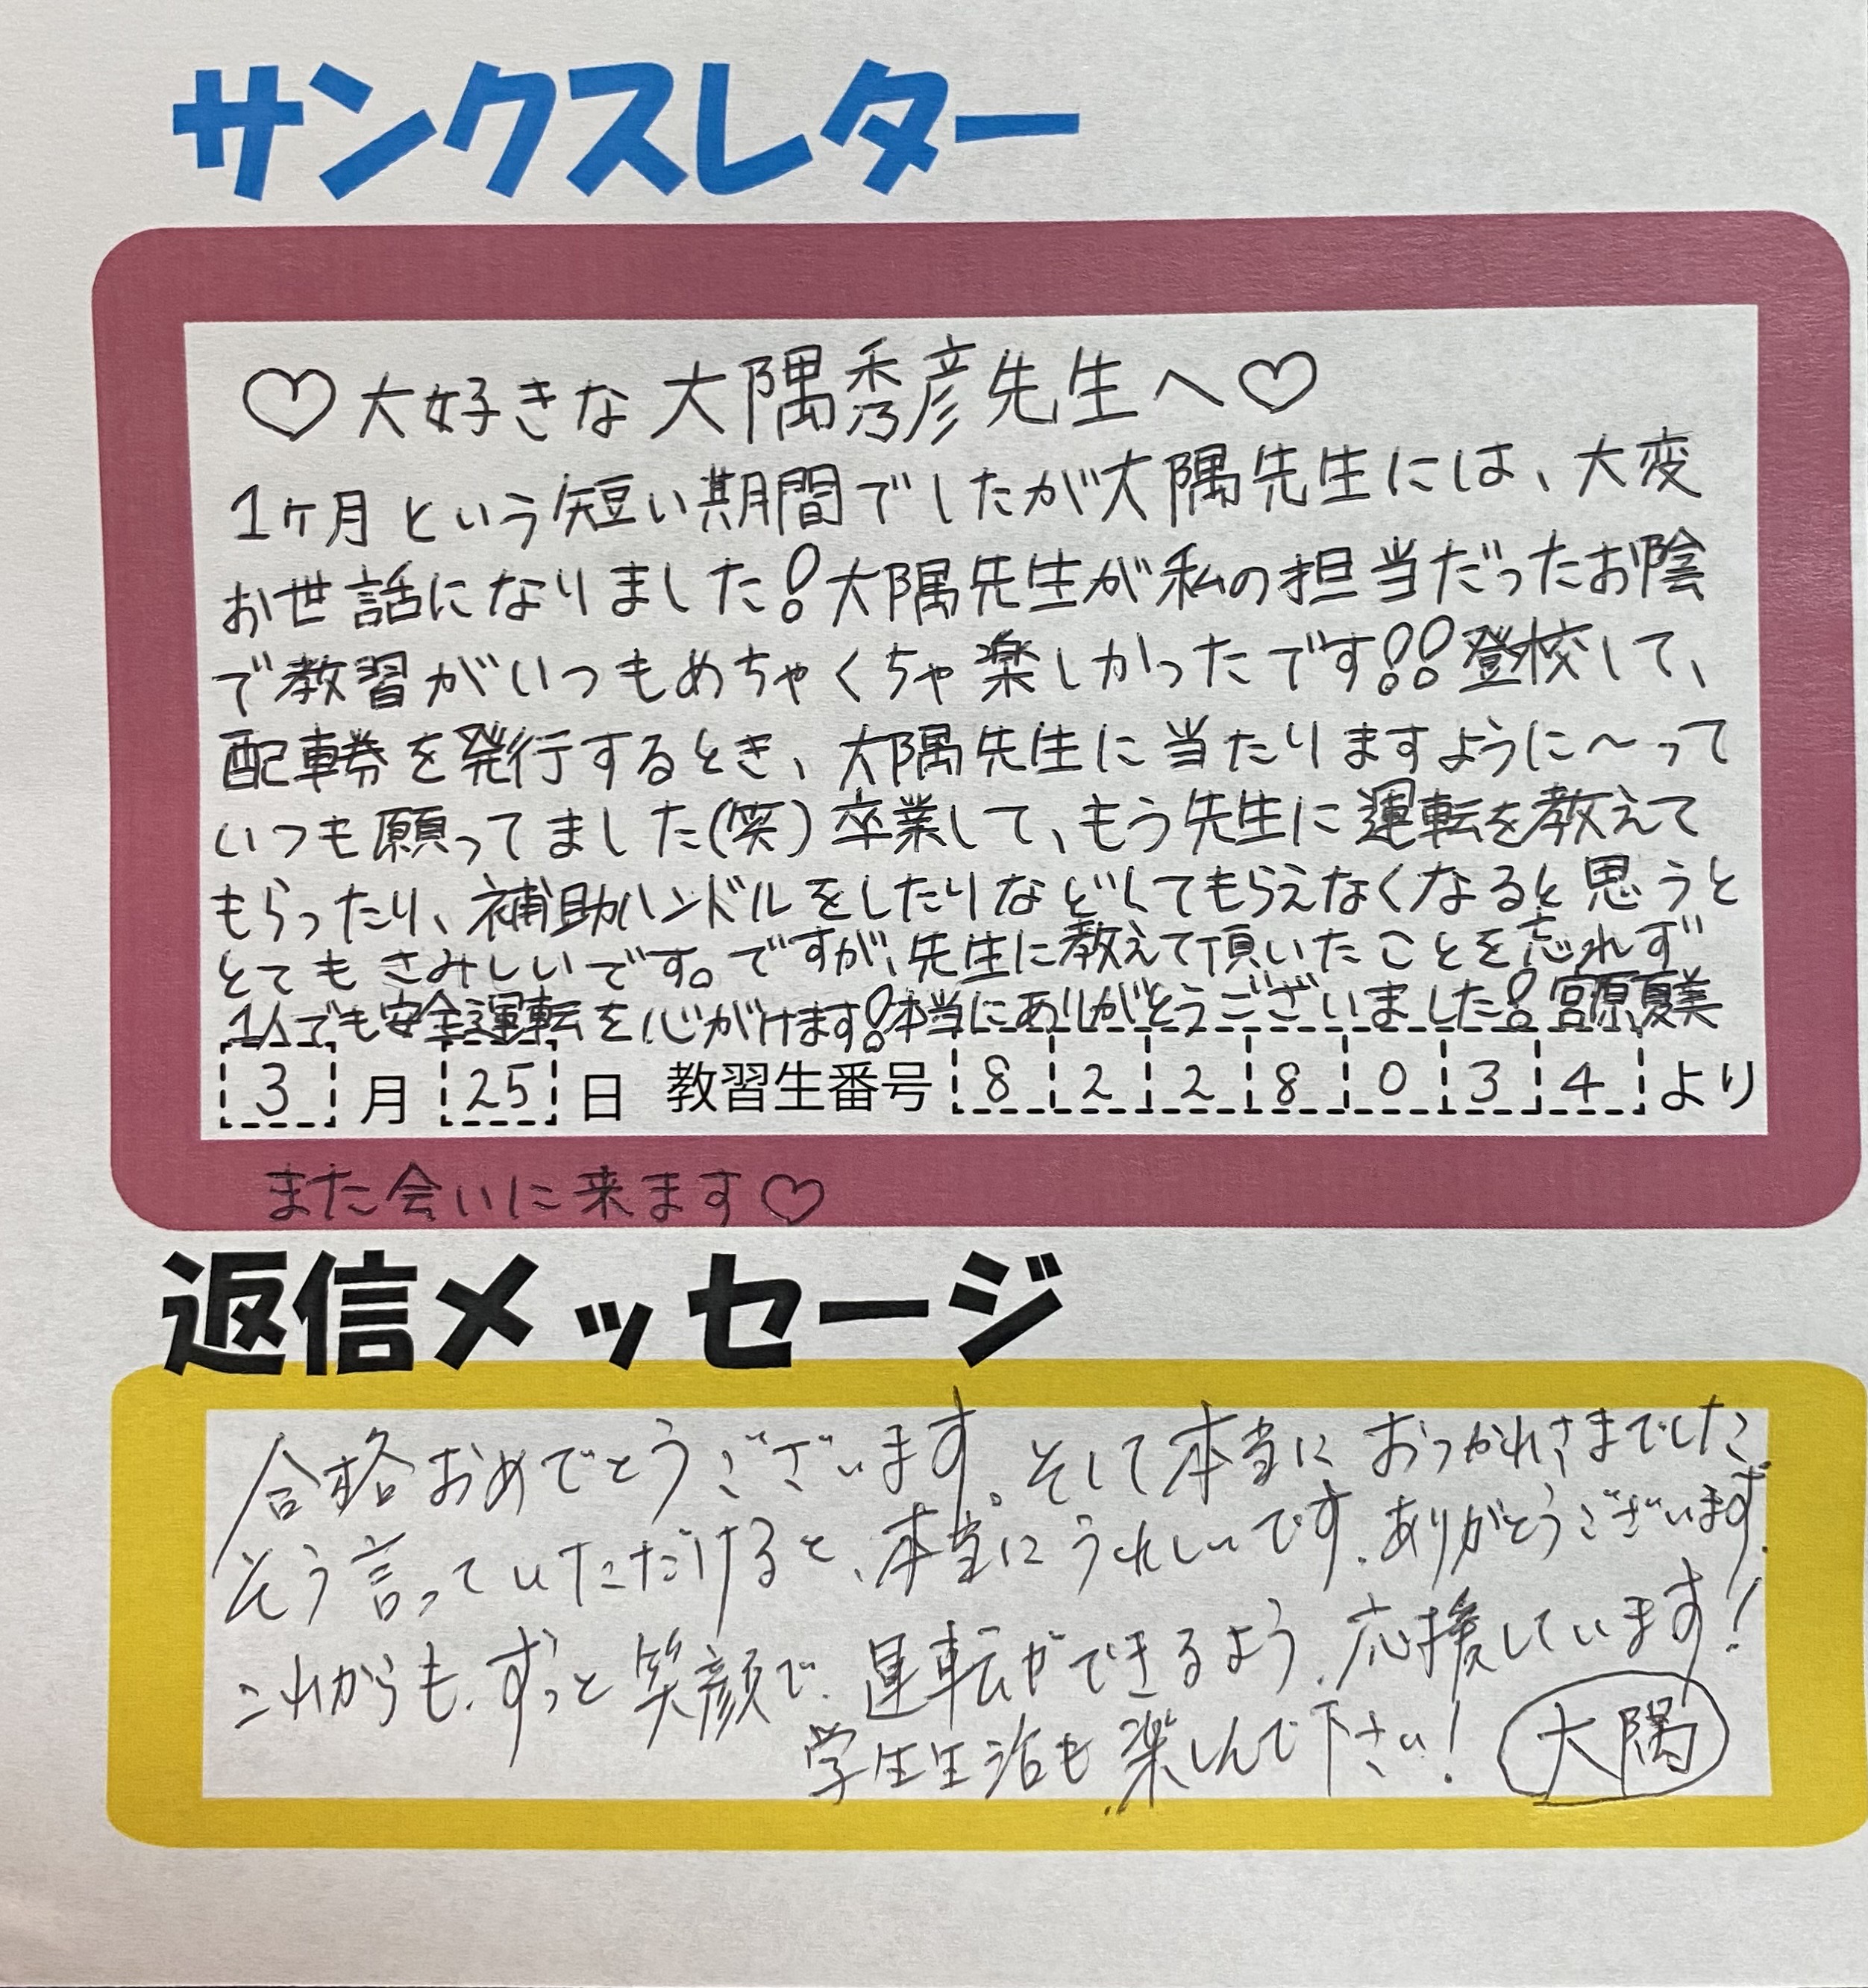 サンクスレター
♡大好きな大隅秀彦先生へ♡
1ヶ月という短い期間でしたが大隅先生には、大変
お世話になりました!大隅先生が私の担当だったお陰
で教習がいつもめちゃくちゃ楽しかったです!!登校して、
配車券を発行するとき、大隅先生に当たりますように～って
いつも願ってました(笑)卒業して、もう先生に運転を教えて
もらったり、補助ハンドルをしたりなどしてもらえなくなると思うと
とてもさみしいです。ですが、先生に教えて頂いたことを忘れず
1人でも安全運転を心がけます!本当にありがとうございました!宮原夏美
3月25日 教習生番号 8228034より
また会いに来ます♡
返信メッセージ
合格おめでとうございます。そして本当におつかれさまでした
そう言っていただけると、本当にうれしいです。ありがとうございます。
これからも、ずっと笑顔で、運転ができるよう、応援しています!
学生生活も楽しんで下さい! 大隅